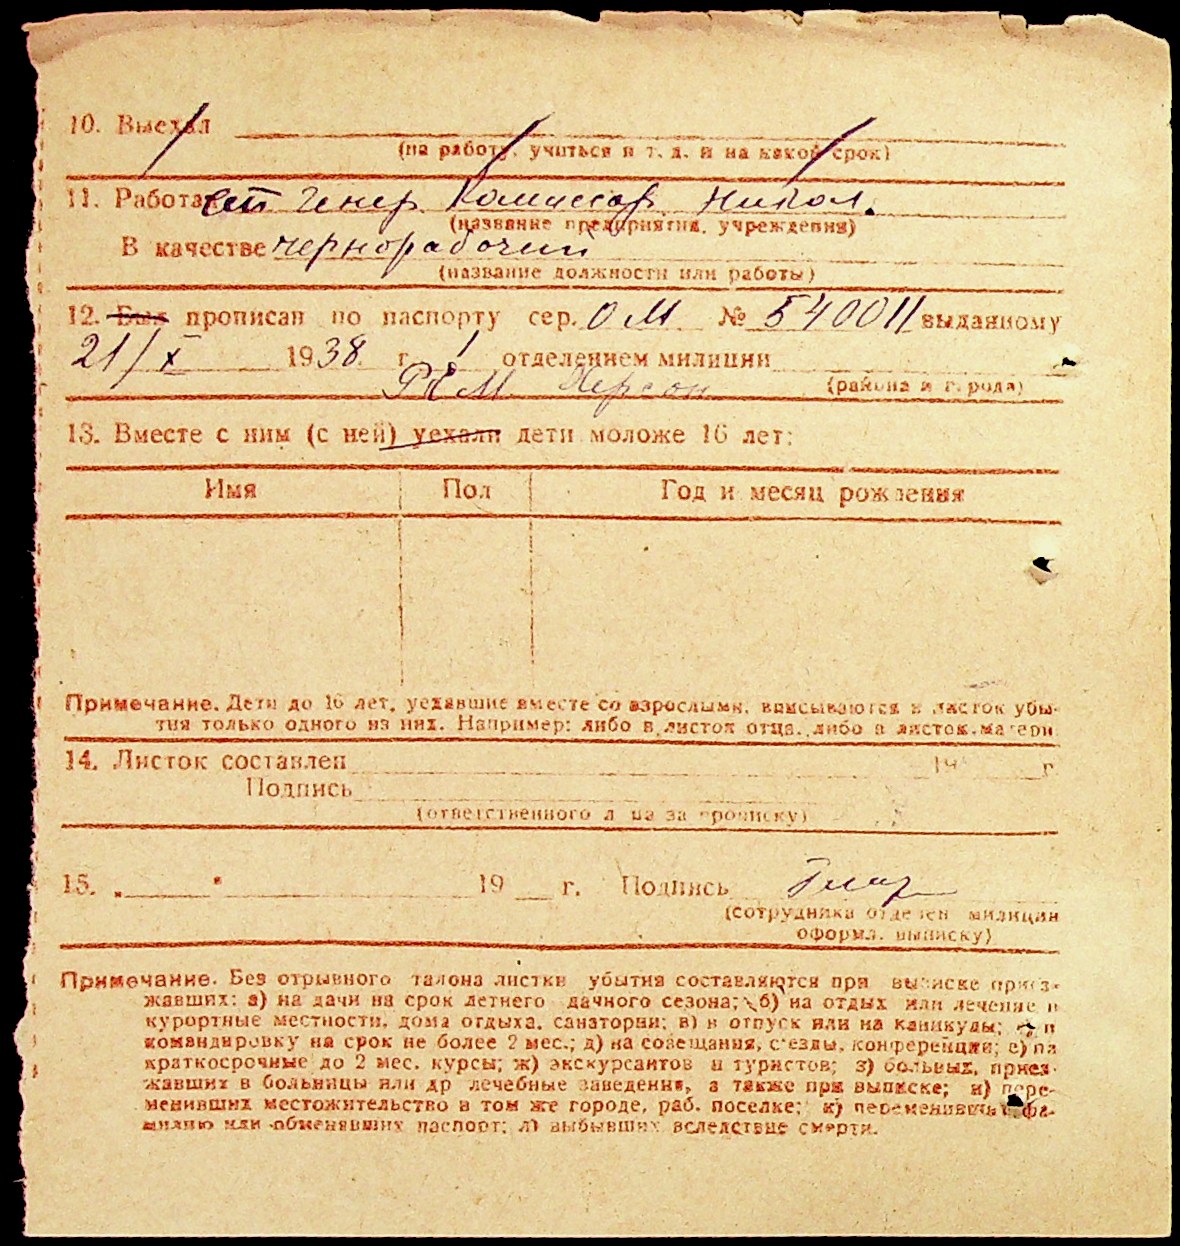 10. Выехал
(на работу, учиться и т. д. и на какой срок)
11. Работает Генер. Комиссар. Никол.
(название предприятия, учреждения)
В качестве чернорабочий
(название должности или работы)
12. Был прописан по паспорту сер. ОМ № 540011 выданному
21/X 1938 г. 1 отделением милиции
РКМ Херсон (района и города)
13. Вместе с ним (с ней) уехали дети моложе 16 лет:
Имя Пол Год и месяц рождения
Примечание. Дети до 16 лет, уехавшие вместе со взрослыми, вписываются в листок убы-
тия только одного из них. Например: либо в листок отца, либо в листок матери
14. Листок составлен 19 г.
Подпись
(ответственного лица за прописку)
15. „ " 19 г. Подпись
(сотрудника отделен. милиции
оформл. выписку)
Примечание. Без отрывного талона листки убытия составляются при выписке приез-
жавших: а) на дачи на срок летнего дачного сезона; б) на отдых или лечение в
курортные местности, дома отдыха, санатории; в) в отпуск или на каникулы; г) в
командировку на срок не более 2 мес.; д) на совещания, съезды, конференции; е) на
краткосрочные до 2 мес. курсы; ж) экскурсантов и туристов; з) больных, приез-
жавших в больницы или др лечебные заведения, а также при выписке; и) пере-
менивших местожительство в том же городе, раб. поселке; к) переменивших фа-
милию или обменявших паспорт; л) выбывших вследствие смерти.